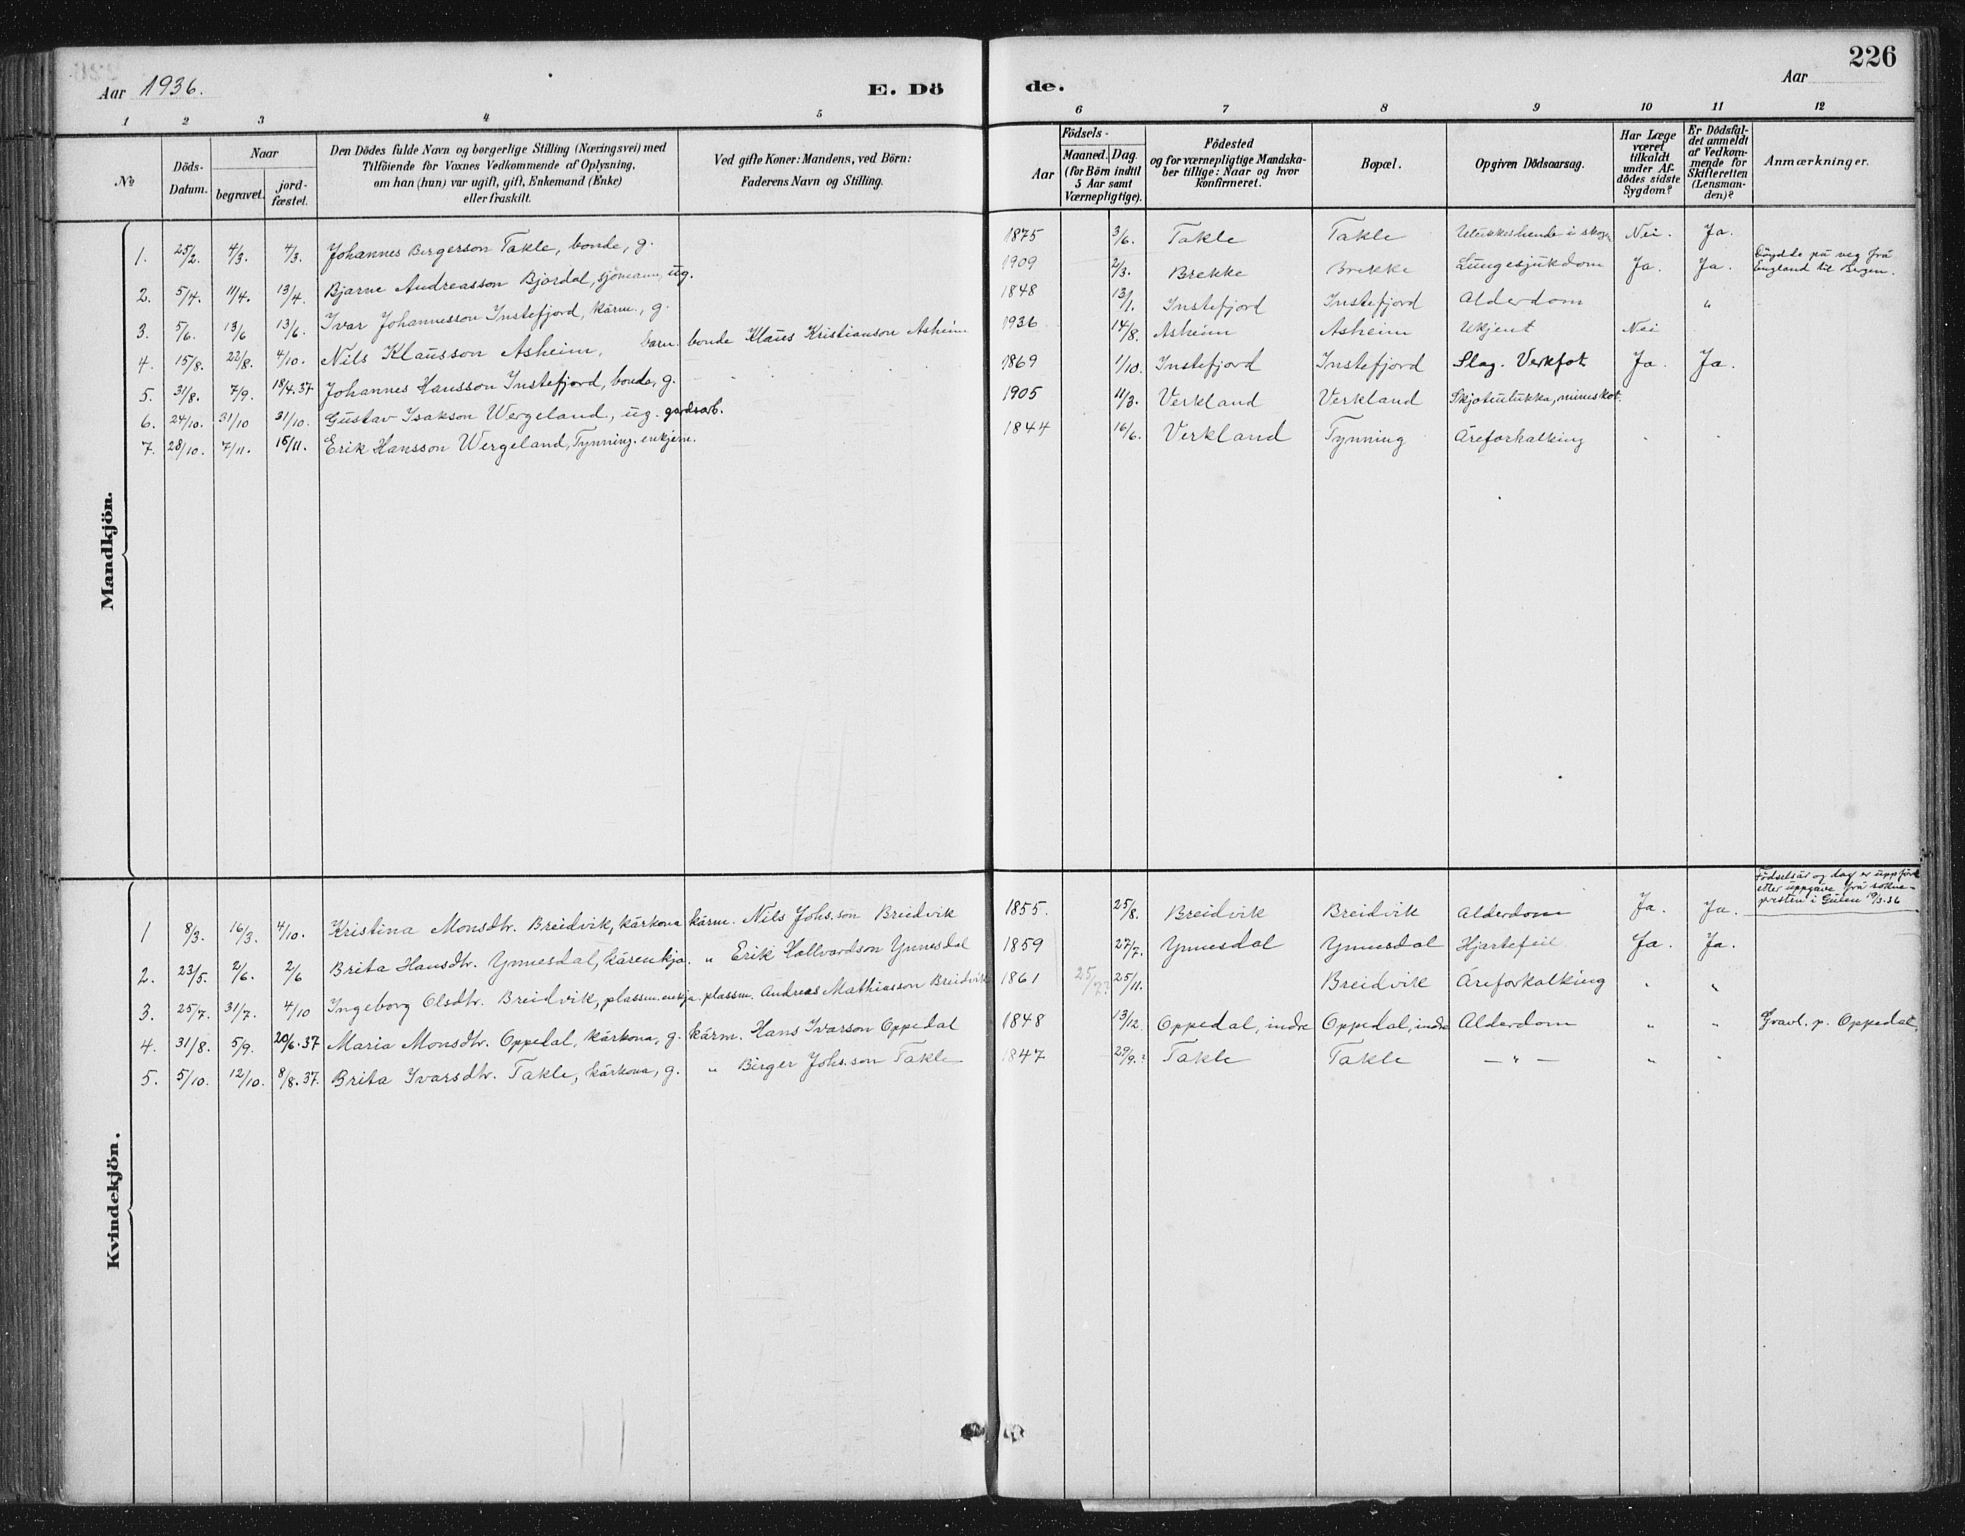 226
Aar 1936.
E. Dö
de.
Aar
1 2 3 4 5 6 7 8 9 10 11 12
№
Döds-
Datum.
Naar
begravet.
jord-
fæstet.
Den Dödes fulde Navn og borgerlige Stilling (Næringsvei) med
Tilföiende for Voxnes Vedkommende af Oplysning,
om han (hun) var ugift, gift, Enkemand (Enke)
eller fraskilt.
Ved gifte Koner: Mandens, ved Börn:
Faderens Navn og Stilling.
Födsels-
Aar
Maaned. Dag.
(for Börn indtil
5 Aar samt
Værnepligtige).
Födested
og for værnepligtige Mandska-
ber tillige: Naar og hvor
konfirmeret.
Bopæl.
Opgiven Dödsaarsag.
Har Læge
været
tilkaldt
under Af-
dödes sidste
Sygdom?
Er Dödsfal-
det anmeldt
af Vedkom-
mende for
Skifteretten
(Lensman-
den)?
Anmærkninger.
Mandkjön.
1. 25/2. 4/3. 4/3. Johannes Bergerson Takle, bonde, g. 1875 3/6. Takle Takle Ulukkeshende i skogen Nei. Ja.
2. 5/4. 11/4. 13/4. Bjarne Andreasson Bjordal, sjömann, ug. 1909 2/3. Brekke Brekke Lungesjukdom Ja. Ja. Döydde på veg frå
England til Bergen.
3. 5/6. 13/6 13/6. Ivar Johannesson Instefjord, kårm., g. 1848 13/1. Instefjord Instefjord Alderdom "
4. 15/8. 22/8. 4/10. Nils Klausson Asheim, barn. bonde Klaus Kristianson Asheim 1936 14/8. Asheim Asheim Ukjent Nei
5. 31/8. 7/9. 18/4.37 Johannes Hansson Instefjord, bonde, g. 1869 1/10. Instefjord Instefjord Slag. Verkfot Ja. Ja.
6. 24/10. 31/10 31/10. Gustav Isakson Wergeland, ug. gardsarb. 1905 11/3. Verkland Verkland Skjotulukka,
7. 28/10. 7/11. 15/11. Erik Hansson Wergeland, Tynning. enkjem. 1844 16/6. Verkland Tynning Åreforkalking " "
Kvindekjön.
Födselsår og dag er uppfört
etter uppgave frå sokne-
presten i Gulen 19/3.36
1 8/3. 16/3. 4/10. Kristina Monsdtr. Breidvik, kårkona kårm. Nils Johs.son Breidvik 1855. 25/8. Breidvik Breidvik Alderdom Ja. Ja.
2. 23/5. 2/6. 2/6 Brita Hansdtr. Ynnesdal, kårenkja. " Erik Hallvardson Ynnesdal 1859 27/7. Ynnesdal Ynnesdal Hjartefeil Ja. Ja.
3. 25/7. 31/7. 4/10 Ingeborg Olsdtr. Breidvik, plassm.enkja. plassm. Andreas Mathiasson Breidvik 1861 25/11. Breidvik Åreforkalking " "
4. 31/8. 5/9. 20/6.37 Maria Monsdtr. Oppedal, kårkona, g. kårm. Hans Ivarson Oppedal 1848 13/12. Oppedal, indre Oppedal, indre Alderdom " " Gravl. p. Oppedal.
5. 5/10. 12/10. 8/8.37. Brita Ivarsdtr. Takle, kårkona, g. " Birger Johs.son Takle 1847 29/9.? Takle Takle — " — " "